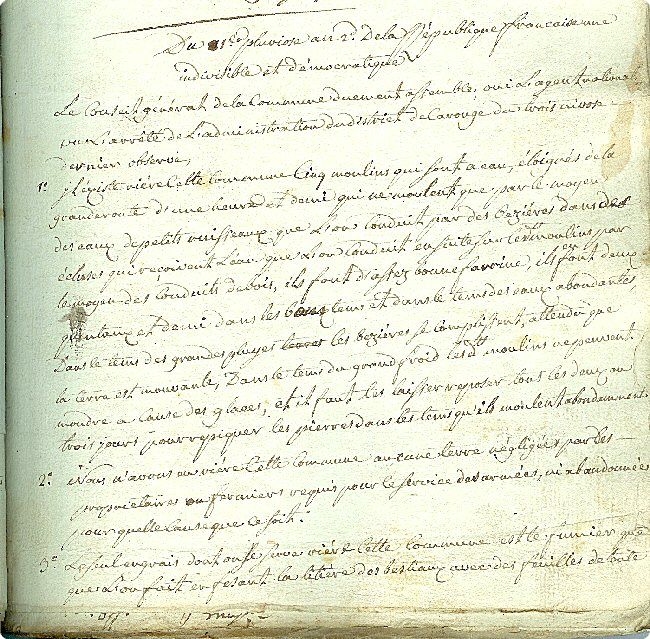 Du 21e. pluviose an 2e. De la République française une
indivisible et démocratique
Le Conseil général de la Commune duement assemblé, oui L'agent national,
vu L'arrêté de L'administration du district de Carouge du trois nivose
dernier observe,
1o. il existe rière Cette Commune Cinq moulins qui sont a eau, éloignés de la
grande route d'une heure et demi qui ne moulent que par le moyen
des eaux de petits ruisseaux que L'on conduit par des bezières dans des
écluses qui reçoivent L'eau que L'on conduit ensuite sur les moulins par
le moyen des Conduits de bois, ils font d'assez bonne farine, ils en font deux
quintaux et demi dans les bons tems et dans le tems des eaux abondantes,
Dans le tems des grandes pluyes les bezières se complissent, attendu que
la terre est mouvante, Dans le tems du grand froid les dts moulins ne peuvent
moudre a Cause des glaces, et il faut les laisser reposer tous les deux ou
trois jours pour rypiquer les pierres dans les tems qu'ils moulent abondamment.
2o. Nous n'avons rière Cette Commune aucune terre négligée par les
propriétaires ou fermiers requis pour le service des armées, ni abandonnées
pour quelle Cause que Ce soit.
3o. Le seul engrais dont on se serve rière Cette Commune est le fumier que
que L'on fait en fesant la litère des bestiaux avec des feuilles de toute